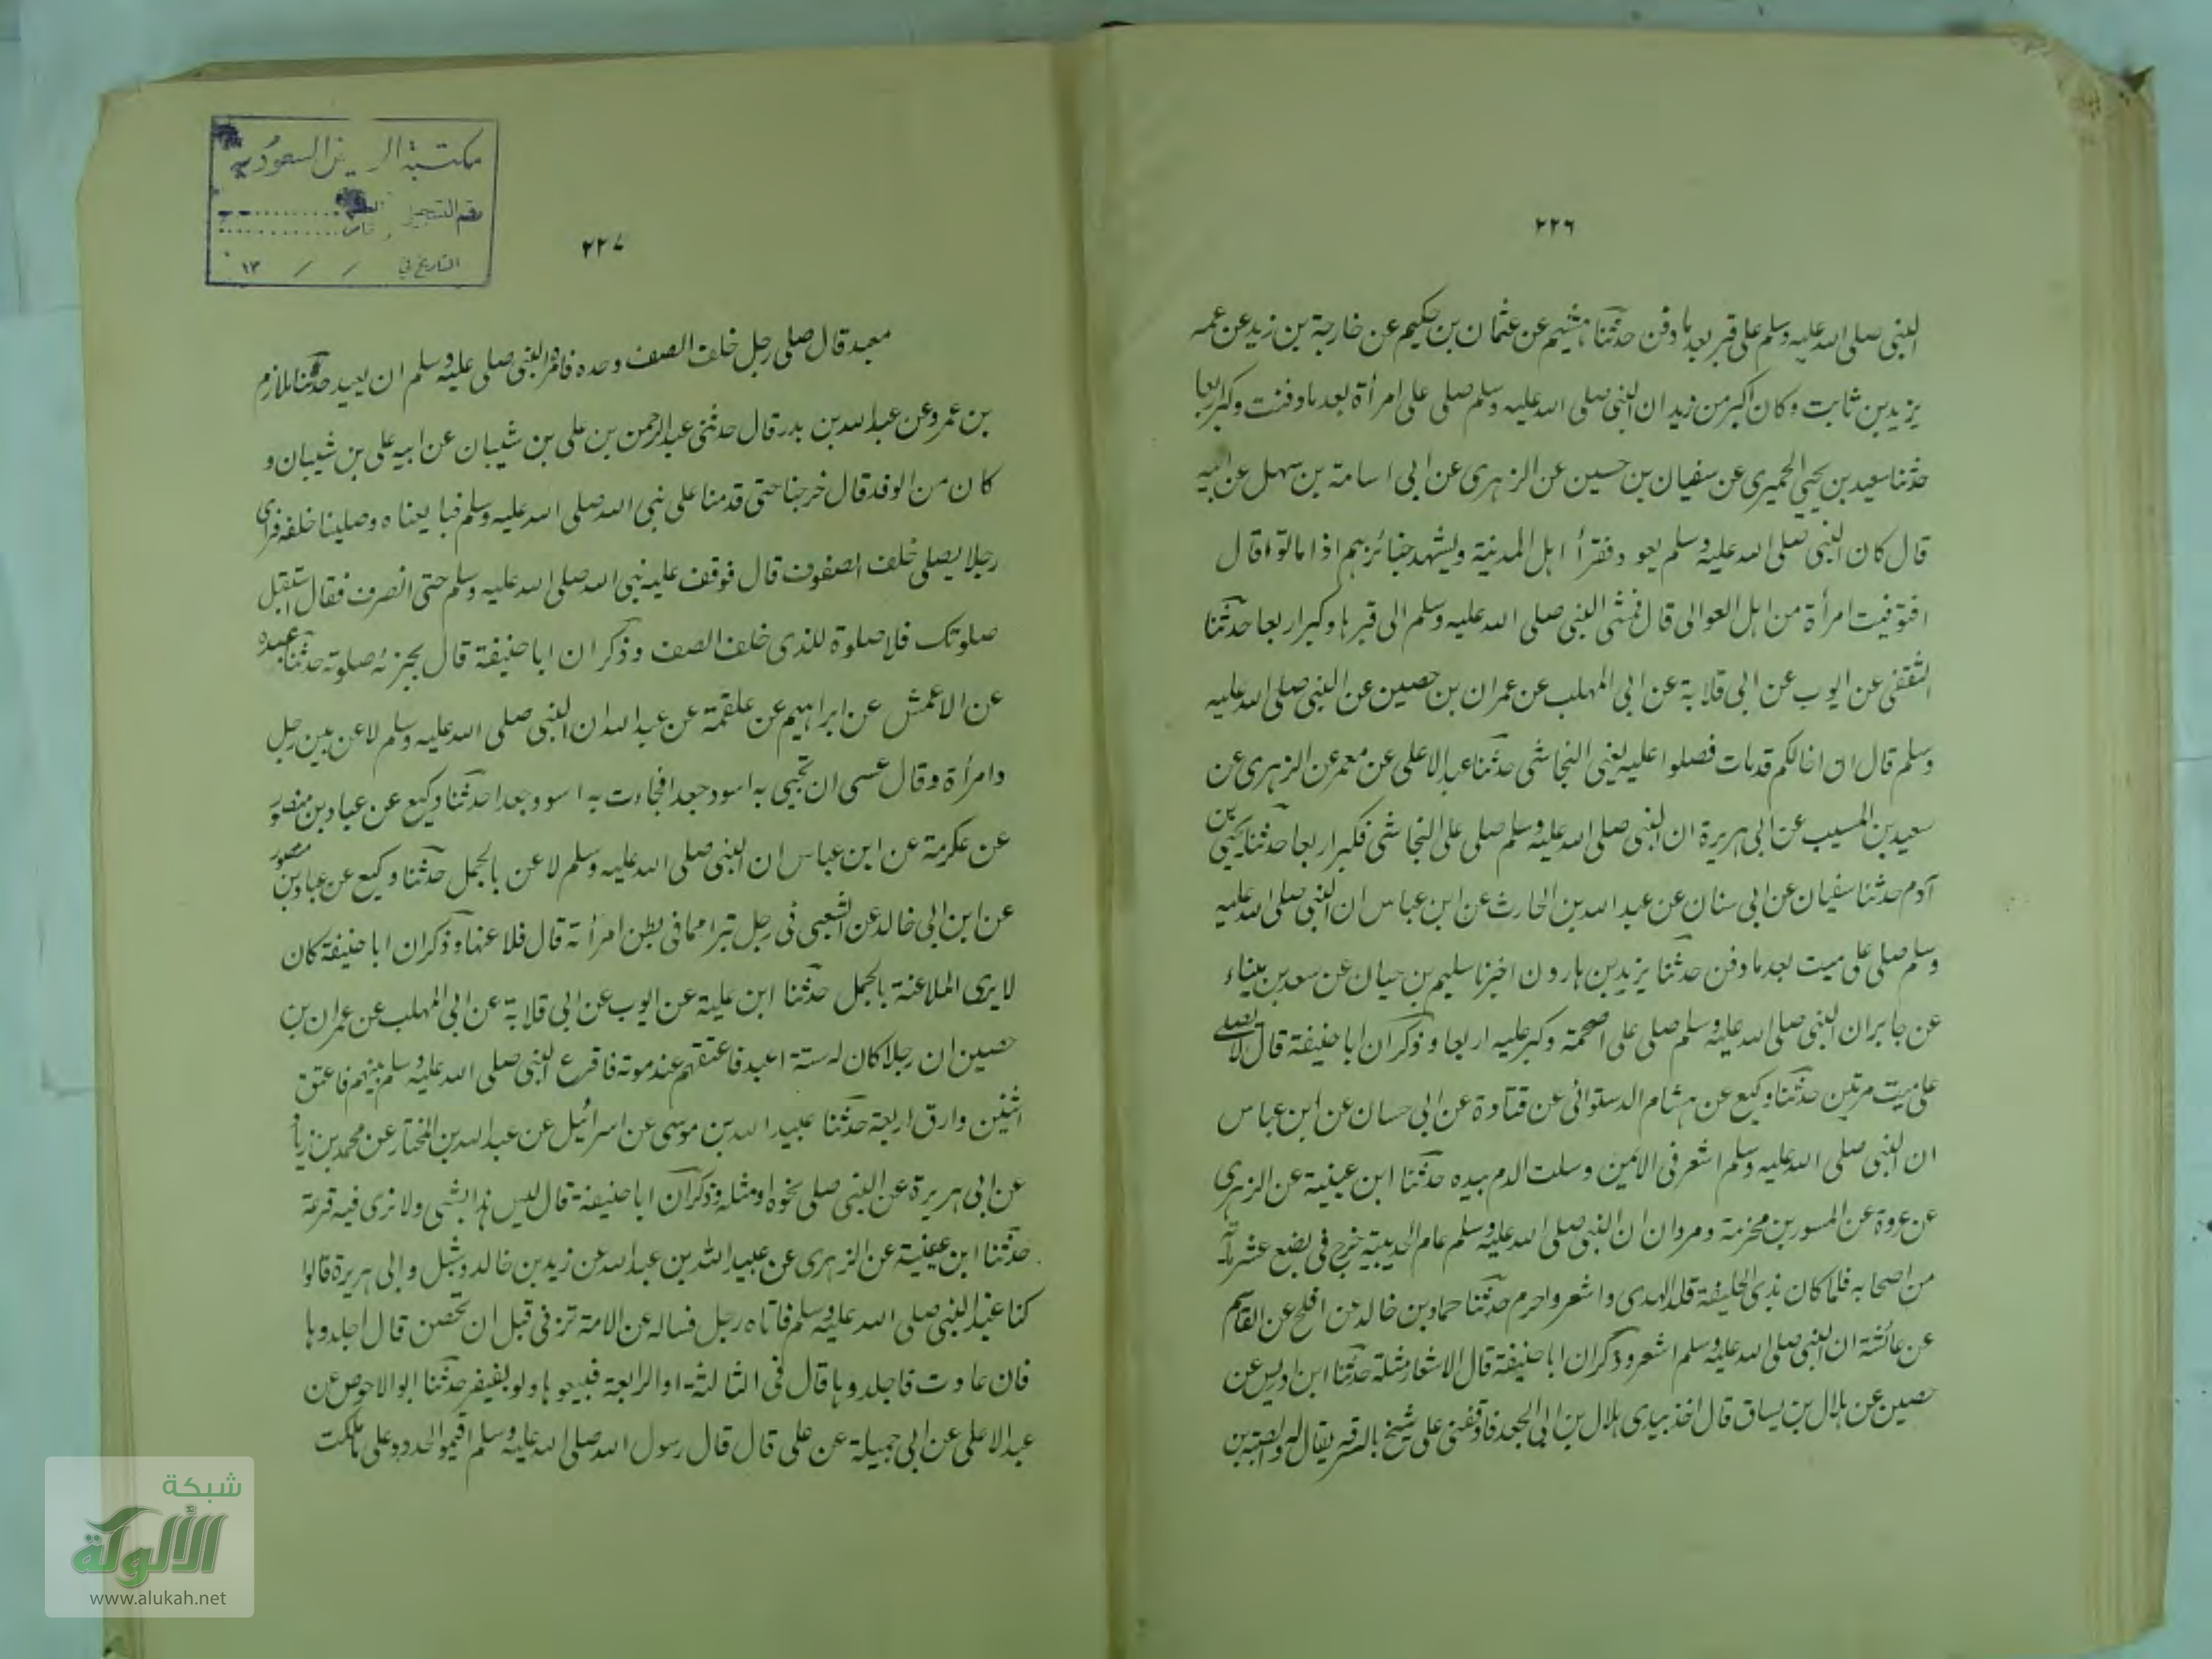 ٢٢٦
النبي صلى الله عليه وسلم على قبر بعد ما دفن حدثنا هشيم عن عثمان بن حكيم عن خارجة بن زيد عن عمه
يزيد بن ثابت وكان اكبر من زيد ان النبي صلى الله عليه وسلم صلى على امرأة بعد ما دفنت وكبر اربعا
حدثنا سعيد بن يحيى الحميري عن سفيان بن حسين عن الزهري عن ابى اسامة بن سهل عن ابيه
قال كان النبي صلى الله عليه وسلم يعود فقرأ اهل المدينة ويشهد جنائزهم اذا ماتوا قال
افتوفيت امرأة من اهل العوالى قال فمشى النبي صلى الله عليه وسلم الى قبرها وكبر اربعا حدثنا
الثقفى عن ايوب عن ابى قلابة عن ابى المهلب عن عمران بن حصين عن النبي صلى الله عليه
وسلم قال ان اخالكم قد مات فصلوا عليه يعنى النجاشى حدثنا عبد الاعلى عن معمر عن الزهرى عن
سعيد بن المسيب عن ابى هريرة ان النبي صلى الله عليه وسلم صلى على النجاشى فكبر اربعا حدثنا يحيى بن
آدم حدثنا سفيان عن ابى سنان عن عبد الله بن الحارث عن ابن عباس ان النبي صلى الله عليه
وسلم صلى على ميت بعد ما دفن حدثنا يزيد بن هارون اخبرنا سليم بن حيان عن سعد بن ميناء
عن جابر ان النبي صلى الله عليه وسلم صلى على اصحمة وكبر عليه اربعا و ذكر ان ابا حنيفة قال لا يصلى
على ميت مرتين حدثنا وكيع عن هشام الدستوائى عن قتادة عن ابى حسان عن ابن عباس
ان النبي صلى الله عليه وسلم اشعر فى الايمن وسلت الدم بيده حدثنا ابن عيينة عن الزهرى
عن عروة عن المسور بن مخرمة ومروان ان النبي صلى الله عليه وسلم عام الحديبية خرج فى بضع عشر مائة
من اصحابه فلما كان بذى الحليفة قلد الهدى واشعر واحرم حدثنا حماد بن خالد عن افلح عن القاسم
عن عائشة ان النبي صلى الله عليه وسلم اشعر و ذكر ان ابا حنيفة قال الاشعار مثلة حدثنا ابن ادريس عن
حصين عن هلال بن يساق قال اخذ بيدى هلال بن ابى الجعد فاوقفنى على شيخ بالرقة يقال له وابصة بن
٢٢٧
معبد قال صلى رجل خلف الصف وحده فامره النبي صلى عليه وسلم ان يعيد حدثنا ملازم
بن عمرو عن عبد الله بن بدر قال حدثنى عبد الرحمن بن على بن شيبان عن ابيه على بن شيبان و
كان من الوفد قال خرجنا حتى قدمنا على نبى الله صلى الله عليه وسلم فبايعناه وصلينا خلفه فراى
رجلا يصلى خلف الصفوف قال فوقف عليه نبى الله صلى الله عليه وسلم حتى انصرف فقال استقبل
صلوتك فلا صلوة للذى خلف الصف و ذكر ان ابا حنيفة قال يجزئه صلوته حدثنا عبدة
عن الاعمش عن ابراهيم عن علقمة عن عبد الله ان النبي صلى الله عليه وسلم لاعن بين رجل
وامرأة وقال عسى ان تجيى به اسود جعدا فجاءت به اسود جعدا حدثنا وكيع عن عباد بن منصور
عن عكرمة عن ابن عباس ان النبي صلى الله عليه وسلم لاعن بالحمل حدثنا وكيع عن عباد بن منصور
عن ابن ابى خالد عن الشعبى فى رجل تبرا مما فى بطن امرأته قال فلاعنها و ذكر ان ابا حنيفة كان
لا يرى الملاعنة بالحمل حدثنا ابن علية عن ايوب عن ابى قلابة عن ابى المهلب عن عمران بن
حصين ان رجلا كان له ستة اعبد فاعتقهم عند موته فاقرع النبي صلى الله عليه وسلم بينهم فاعتق
اثنين وارق اربعة حدثنا عبيد الله بن موسى عن اسرائيل عن عبد الله بن المختار عن محمد بن زياد
عن ابى هريرة عن النبي صلى نحوه او مثله و ذكر ان ابا حنيفة قال ليس هذا بشى ولا نرى فيه قرعة
حدثنا ابن عيينة عن الزهرى عن عبيد الله بن عبد الله عن زيد بن خالد وشبل وابى هريرة قالوا
كنا عند النبي صلى الله عليه وسلم فاتاه رجل فساله عن الامة تزنى قبل ان تحصن قال اجلدوها
فان عادت فاجلدوها قال فى الثالثة او الرابعة فبيعوها ولو بضفير حدثنا ابو الاحوص عن
عبد الاعلى عن ابى جميلة عن على قال قال رسول الله صلى الله عليه وسلم اقيموا الحدود على ما ملكت
مكتبة الرياض السعودية
رقم التسجيل
التاريخ في / / ١٣
شبكة
الألوكة
www.alukah.net